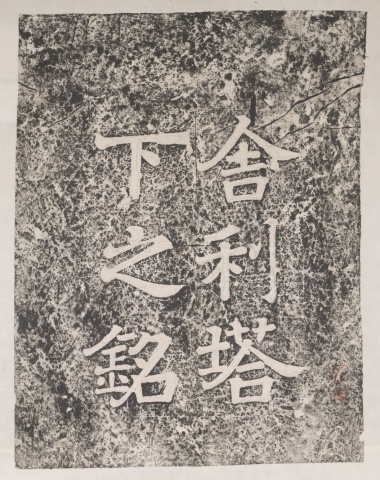 舍利塔
下之銘